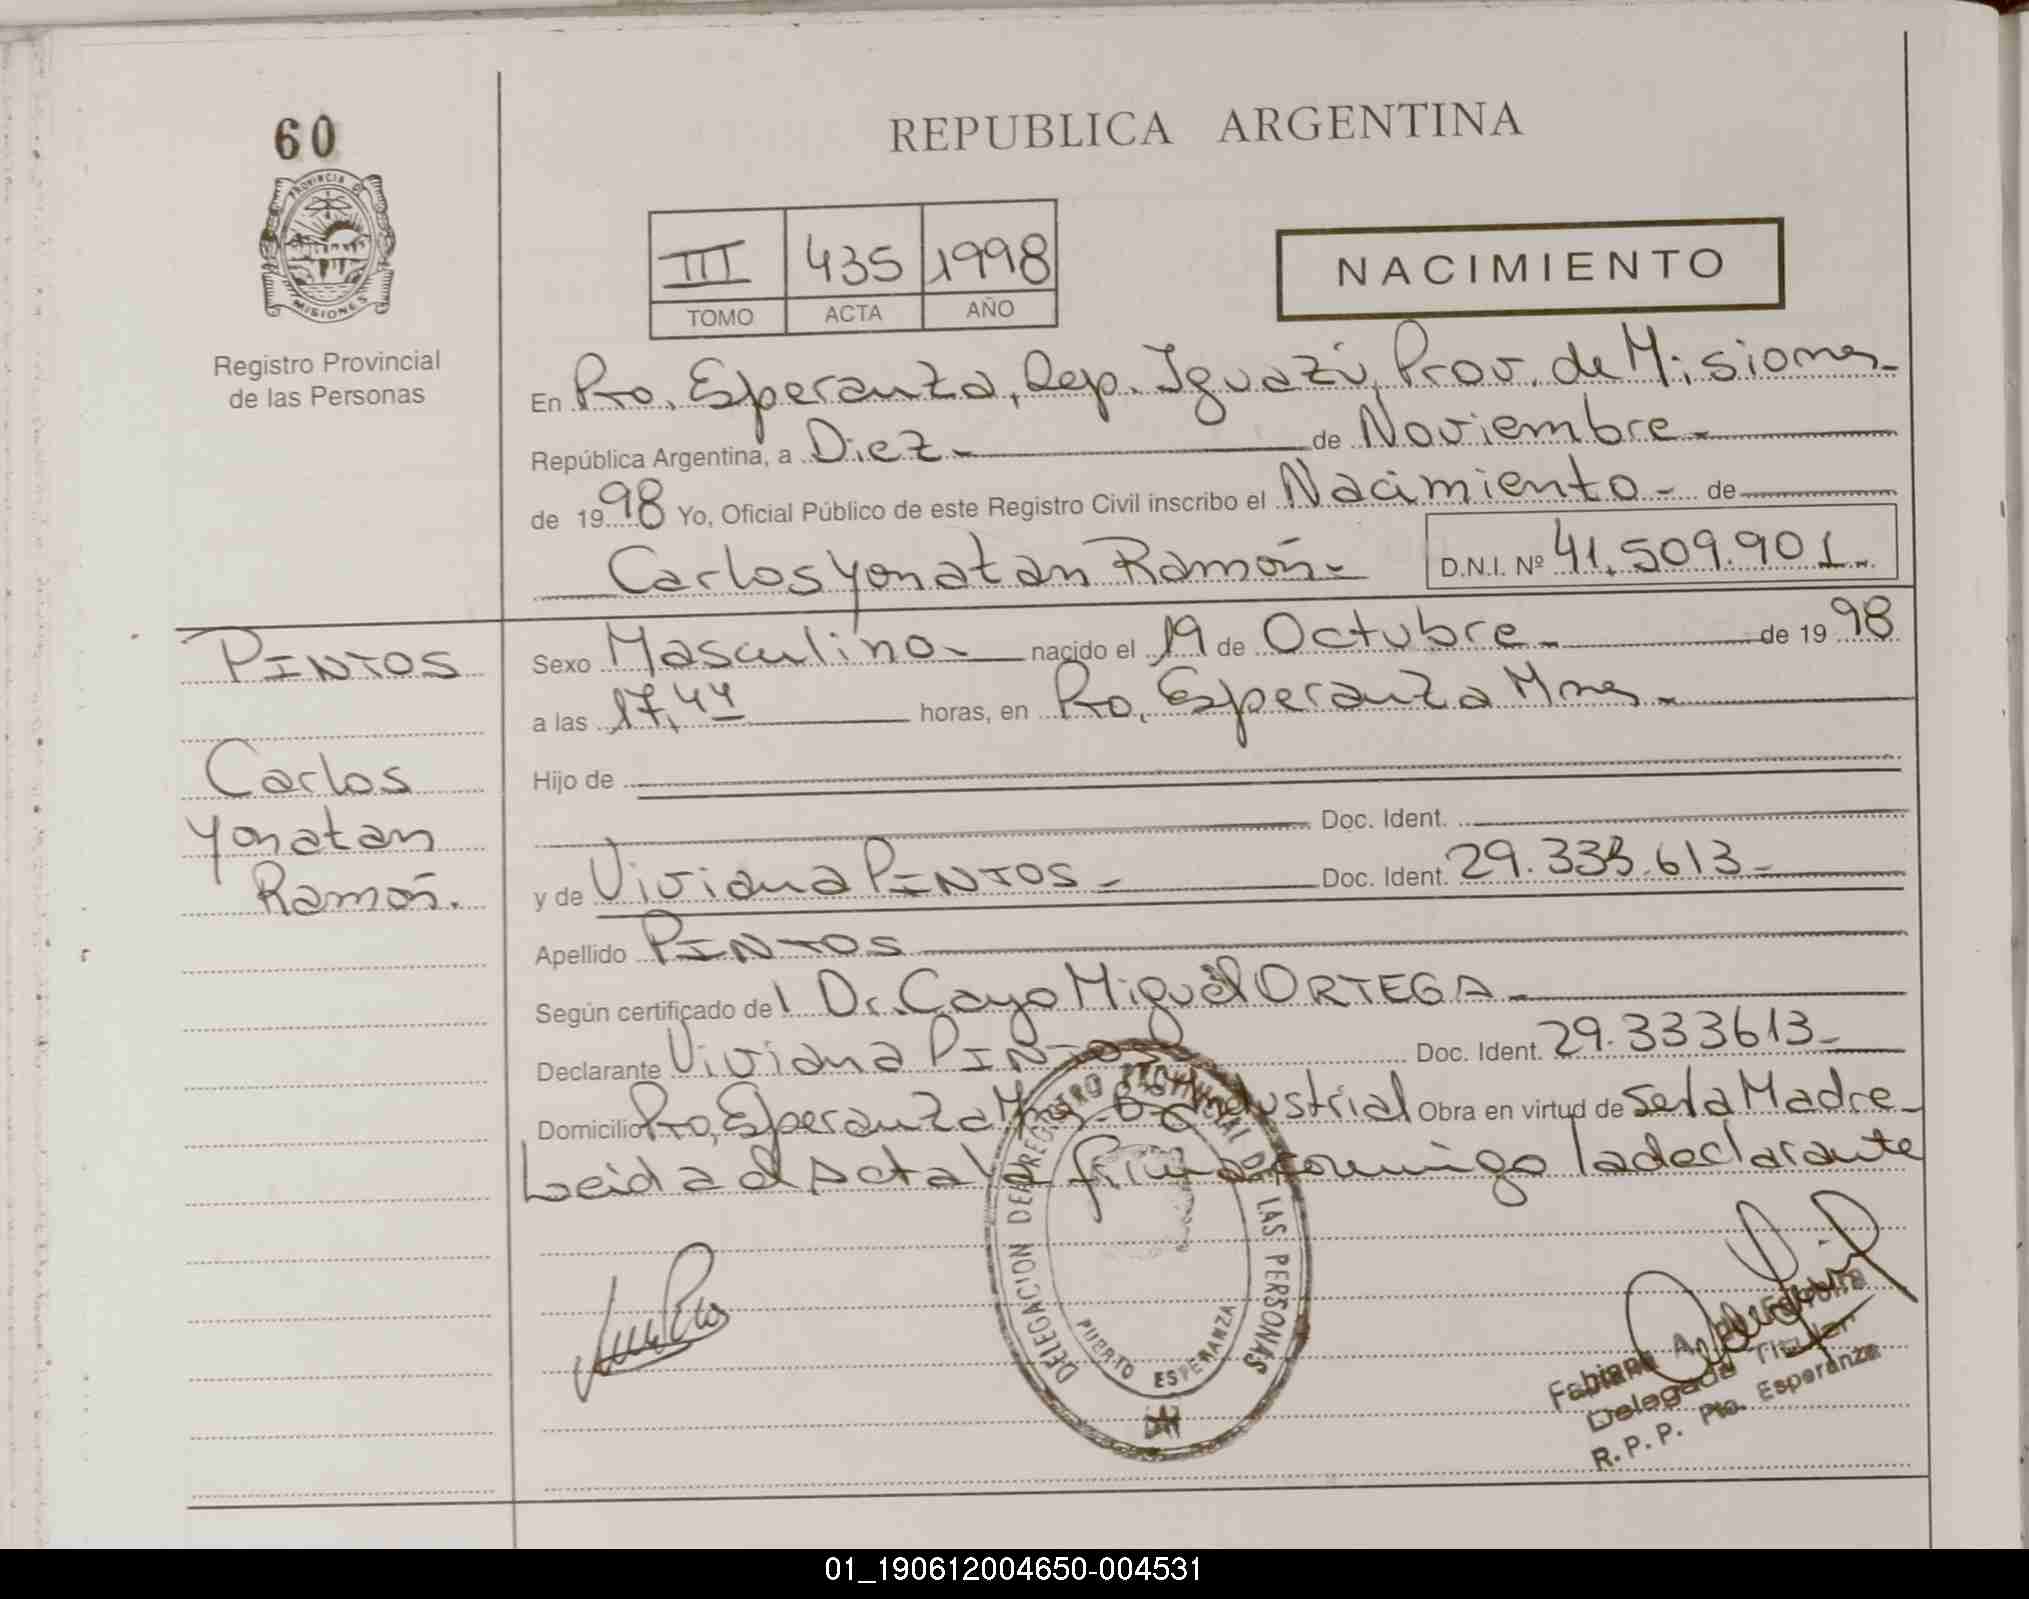 60
PROVINCIA DE
MISIONES
Registro Provincial
de las Personas
REPUBLICA ARGENTINA
III 435 1998
TOMO ACTA AÑO
NACIMIENTO
En Pto. Esperanza, Dep. Iguazú, Prov. de Misiones
República Argentina, a Diez de Noviembre
de 1998 Yo, Oficial Público de este Registro Civil inscribo el Nacimiento de
Carlos Yonatan Ramón D.N.I. Nº 41.509.901
PINTOS
Carlos
Yonatan
Ramón.
Sexo Masculino nacido el 19 de Octubre de 1998
a las 17,44 horas, en Pto. Esperanza Mnes.
Hijo de
Doc. Ident.
y de Viviana PINTOS Doc. Ident. 29.333.613
Apellido PINTOS
Según certificado del Dr. Cayo Miguel ORTEGA
Declarante Viviana PINTOS Doc. Ident. 29.333613
Domicilio Pto, Esperanza Mnes Bº Industrial Obra en virtud de Ser la Madre
Leida el Acta la firma conmigo la declarante
DELEGACION DEL REGISTRO PROVINCIAL DE LAS PERSONAS
PUERTO ESPERANZA
Fabiana A.
Delegada Titular
R.P.P. Pto. Esperanza
01_190612004650-004531